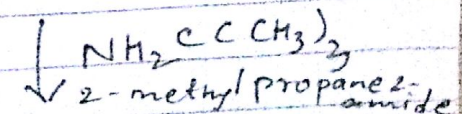 NH2 C C CH3)3
2-methyl propane 2-
amide